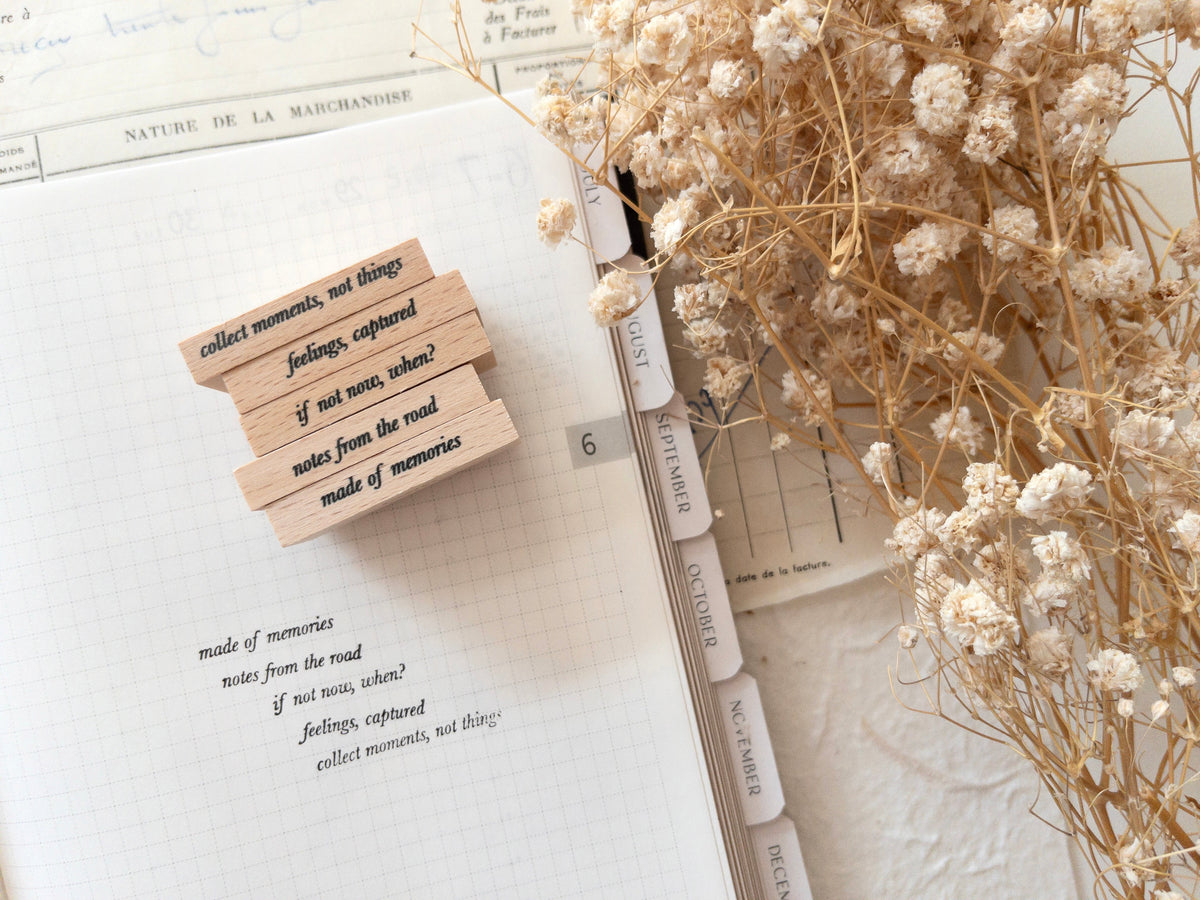 re à
des Frais
à Facturer
NATURE DE LA MARCHANDISE
PROPORTION
collect moments, not things
feelings, captured
if not now, when?
notes from the road
made of memories
6
made of memories
notes from the road
if not now, when?
feelings, captured
collect moments, not things
JULY
AUGUST
SEPTEMBER
OCTOBER
NOVEMBER
DECEM
date de la facture.